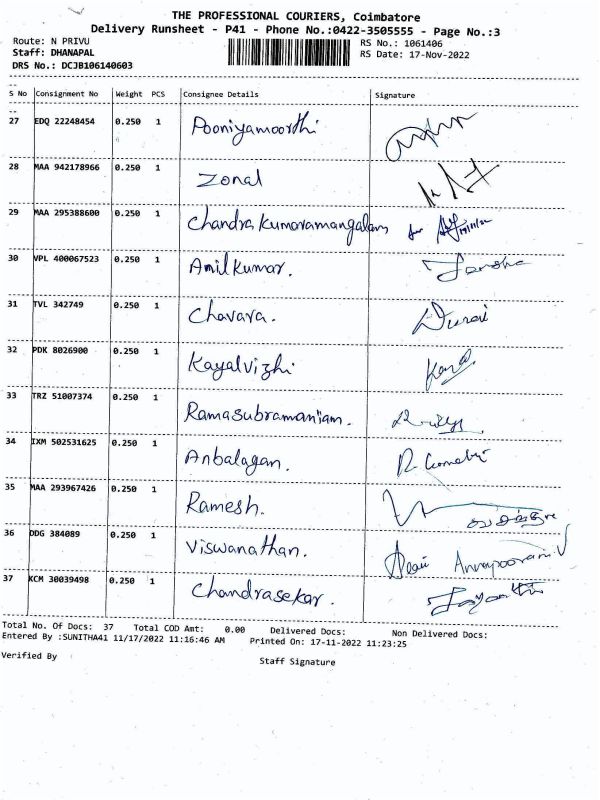 THE PROFESSIONAL COURIERS, Coimbatore
Delivery Runsheet - P41 - Phone No.:0422-3505555 - Page No.:3
Route: N PRIVU RS No.: 1061406
Staff: DHANAPAL RS Date: 17-Nov-2022
DRS No.: DCJB106140603
S No Consignment No Weight PCS Consignee Details Signature
27 EDQ 22248454 0.250 1 Pooniyamoorthi
28 MAA 942178966 0.250 1 Zonal
29 MAA 295388600 0.250 1 Chandra Kumoramangalam for
30 VPL 400067523 0.250 1 Amilkumar.
31 TVL 342749 0.250 1 Chavara. Durai
32 PDK 8026900 0.250 1 Kayalvizhi
33 TRZ 51007374 0.250 1 Ramasubramaniam.
34 IXM 502531625 0.250 1 Anbalagan.
35 MAA 293967426 0.250 1 Ramesh.
36 DDG 384089 0.250 1 Viswanathan. Annapoorani V
37 KCM 30039498 0.250 1 Chandrasekar.
Total No. Of Docs: 37 Total COD Amt: 0.00 Delivered Docs: Non Delivered Docs:
Entered By :SUNITHA41 11/17/2022 11:16:46 AM Printed On: 17-11-2022 11:23:25
Verified By Staff Signature